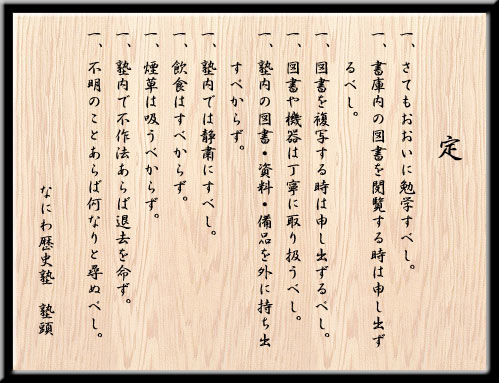 定
一、さてもおおいに勉学すべし。
一、書庫内の図書を閲覧する時は申し出ず
るべし。
一、図書を複写する時は申し出ずるべし。
一、図書や機器は丁寧に取り扱うべし。
一、塾内の図書・資料・備品を外に持ち出
すべからず。
一、塾内では静粛にすべし。
一、飲食はすべからず。
一、煙草は吸うべからず。
一、塾内で不作法あらば退去を命ず。
一、不明のことあらば何なりと尋ぬべし。
なにわ歴史塾　塾頭